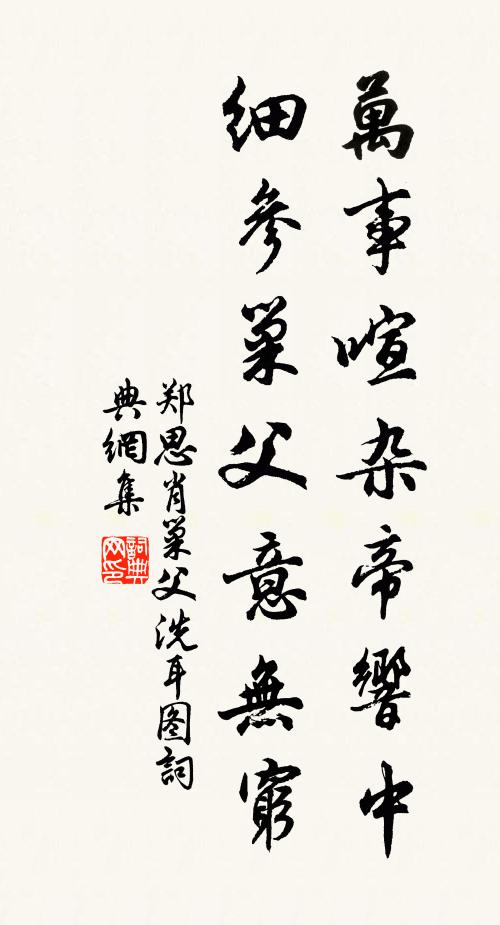 萬事喧杂帝響中
細參巢父意無窮
郑思肖巢父洗耳图詞
典網集
詞典
网印